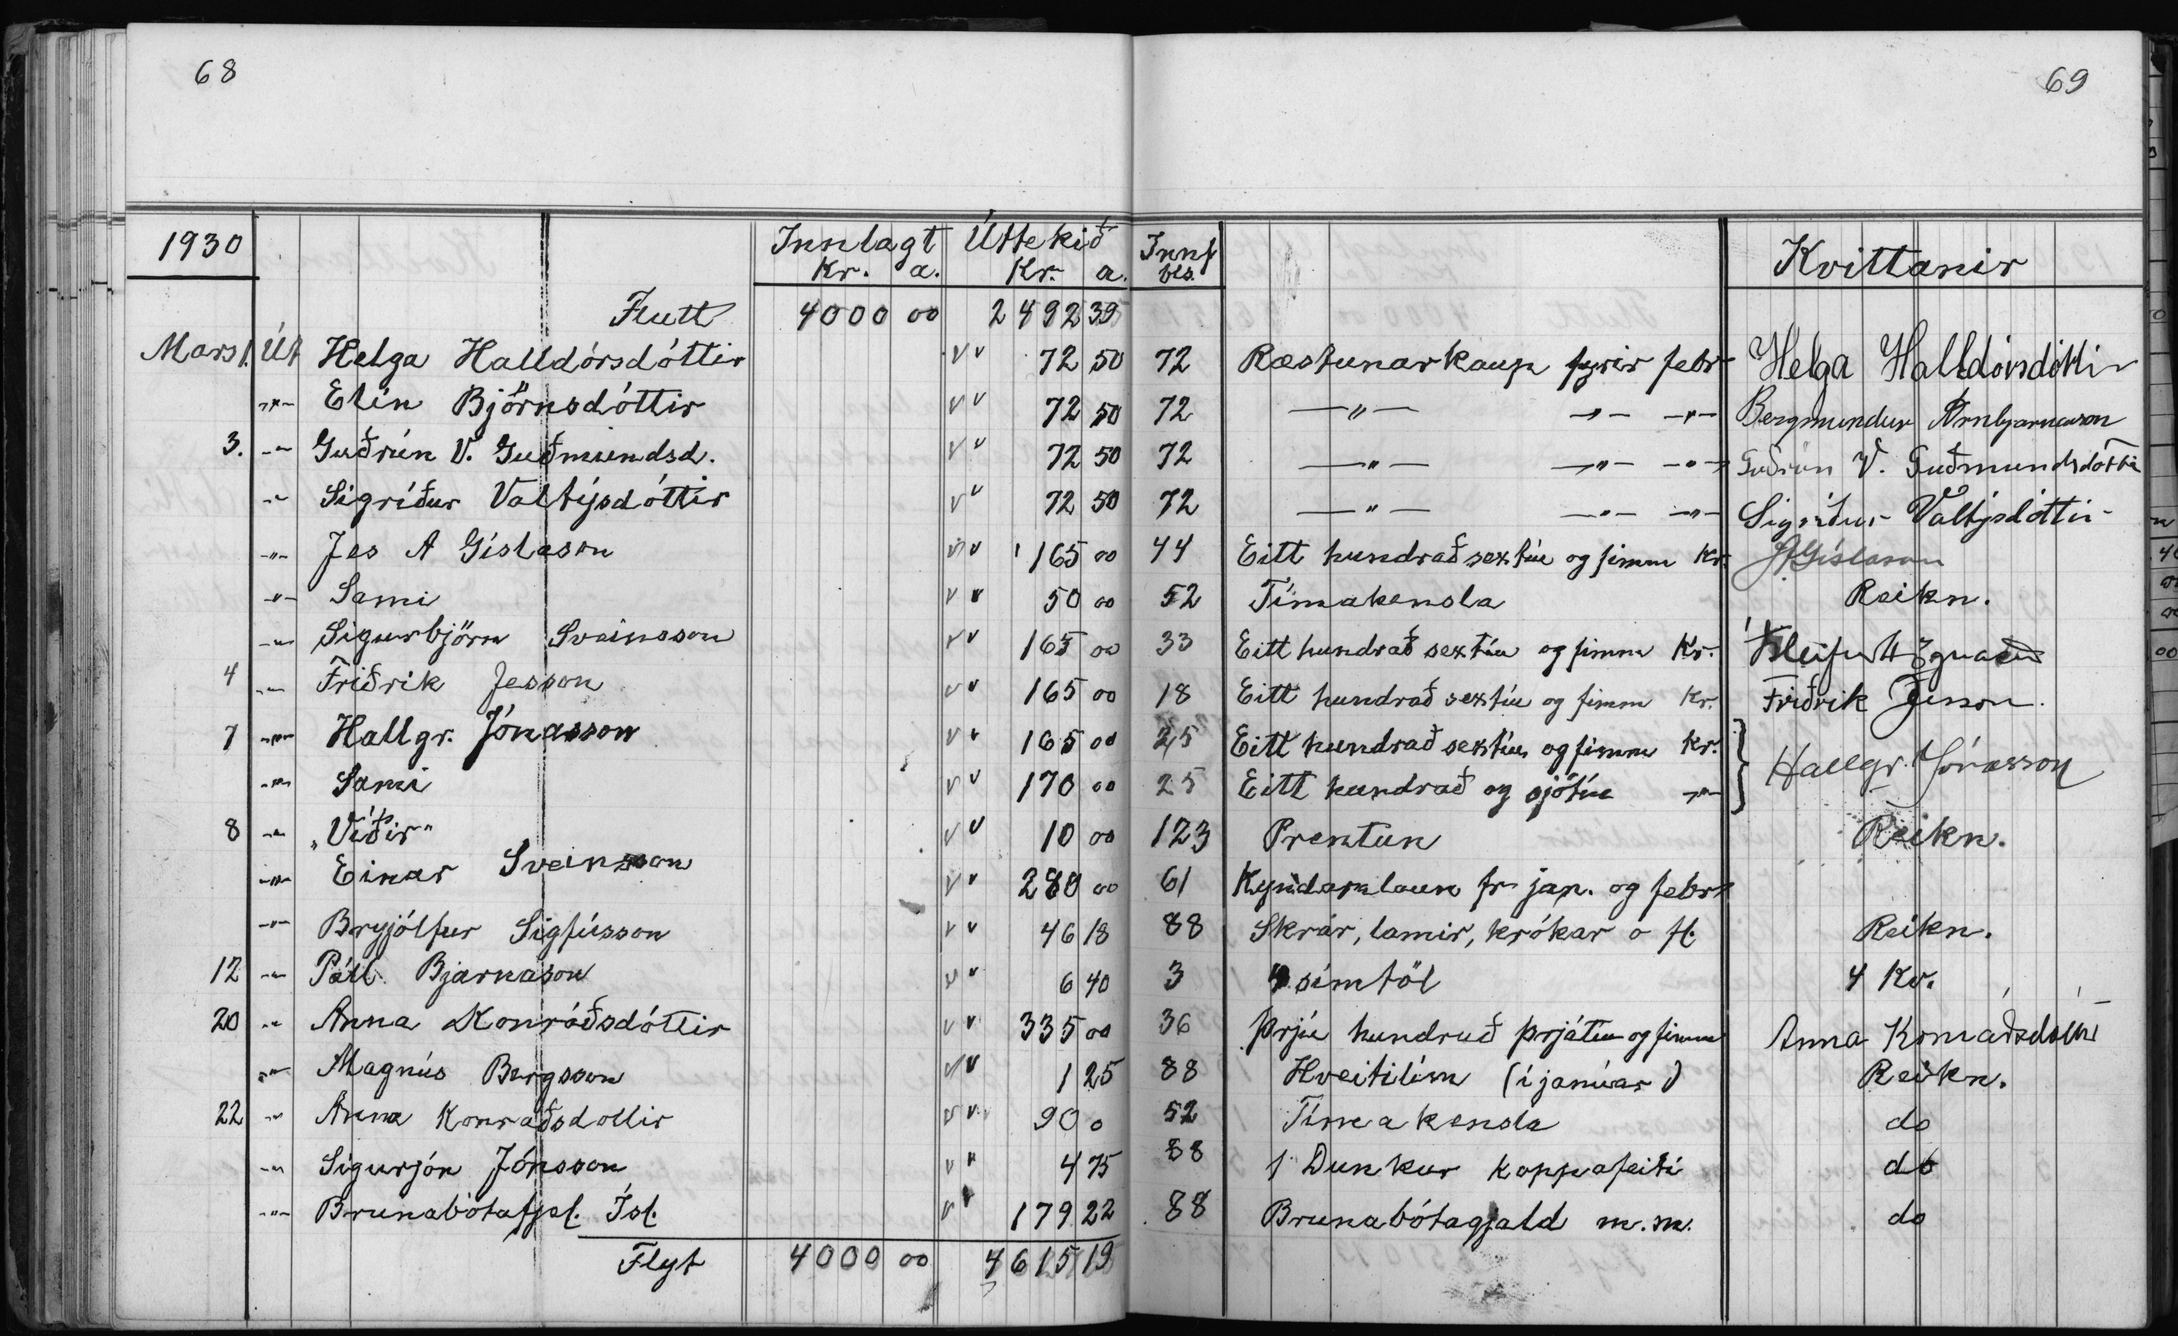 68
69
1930 Innlagt Úttekið Innf. Kvittanir
Kr. a. Kr. a. bls.
Flutt 4000 00 2492 39
Mars 1. Út Helga Halldórsdóttir 72 50 72 Ræstunarkaup fyrir febr Helga Halldórsdóttir
-"- Elín Björnsdóttir 72 50 72 -"- -"- -"- Bergmundur Arnbjarnarson
3. -"- Guðrún V. Guðmundsd. 72 50 72 -"- -"- -"- Guðrún V. Guðmundsdótti
-"- Sigríður Valtýsdóttir 72 50 72 -"- -"- -"- Sigríður Valtýsdóttir
-"- Jes A Gíslason 165 00 44 Eitt hundrað sextíu og fimm Kr. JAGíslason
-"- Sami 50 00 52 Tímakensla Reikn.
-"- Sigurbjörn Sveinsson 165 00 33 Eitt hundrað sextíu og fimm Kr.
4 -"- Friðrik Jesson 165 00 18 Eitt hundrað sextíu og fimm Kr. Friðrik Jesson.
7 -"- Hallgr. Jónasson 165 00 25 Eitt hundrað sextíu og fimm Kr. Hallgr. Jónasson
-"- Sami 170 00 25 Eitt hundrað og sjötíu -"-
8 -"- „Víðir" 10 00 123 Prentun Reikn.
-"- Einar Sveinsson 280 00 61 Kyndaralaun fr jan. og febr
-"- Bryjólfur Sigfússon 46 18 88 Skrár, lamir, krókar o fl. Reikn.
12 -"- Páll Bjarnason 6 40 3 4 símtöl 4 Kv.
20 -"- Anna Konráðsdóttir 335 00 36 Þrjú hundruð þrjátíu og fimm Anna Konráðsdóttir
-"- Magnús Bergsson 1 25 88 Hveitilím (í janúar) Reikn.
22 -"- Anna Konráðsdottir 90 0 52 Tímakensla do
-"- Sigurjón Jónsson 4 75 88 1 Dunkur Koppafeiti do
-"- Brunabótafjel. Ísl. 179 22 88 Brunabótagjald m.m. do
Flyt 4000 00 4615 19